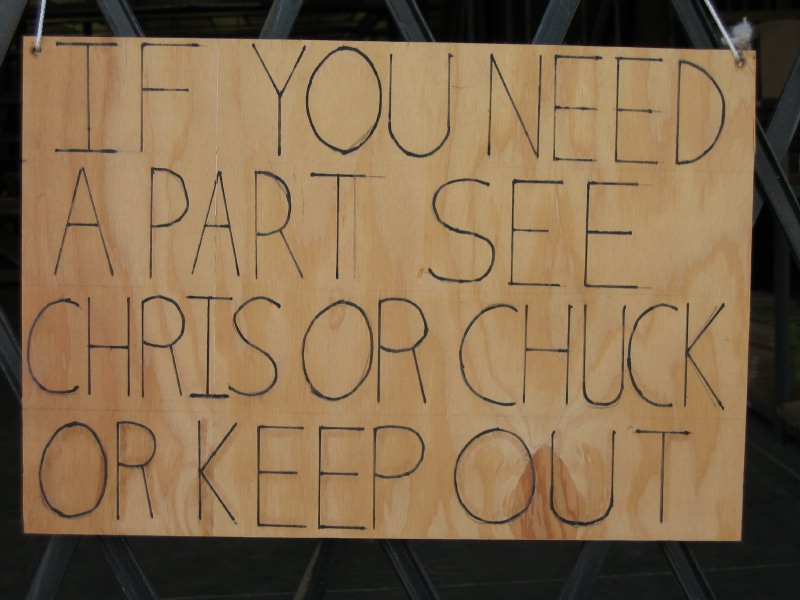 IF YOU NEED
A PART SEE
CHRIS OR CHUCK
OR KEEP OUT